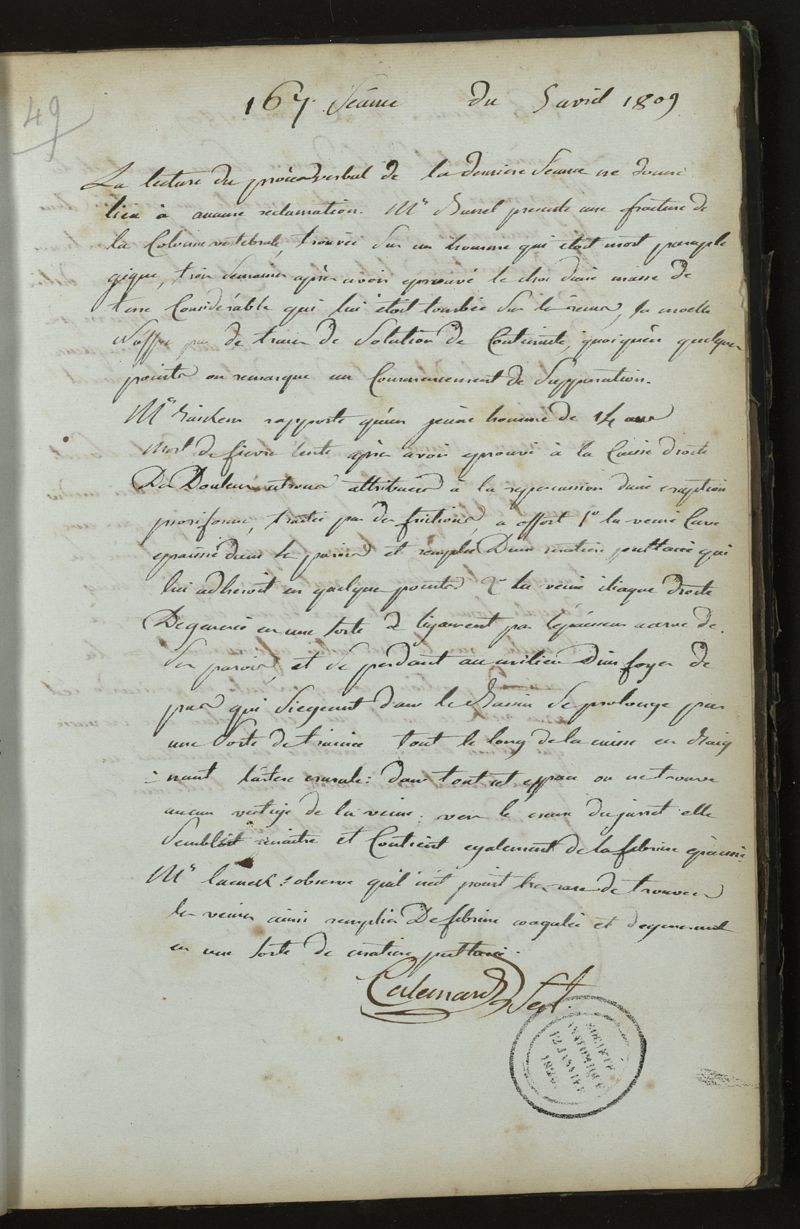 49
167. Séance du 5 avril 1809
La lecture du procès verbal de la derniere Séance ne donne
lieu à aucune reclamation. Mr presente une fracture de
la Colonne vertebrale, trouvée Sur un homme qui etoit mort paraple
gique, trois Semaines après avoir eprouvé le choc d'une masse de
terre Considérable qui lui étoit tombée Sur les reins, la moelle
n'offre pas de traces de Solution de Continuité, quoiqu'en quelques
points on remarque un Commencement de Suppuration.
Mr rapporte qu'un jeune homme de 14 ans
mort de fievre lente après avoir eprouvé à la Cuisse droite
Des Douleurs atroces attribuées à la repercussion d'une eruption
psoriforme, traitée par des frictions a offert 1o la veine Cave
epaissie dans ses parois et remplie D'une matiere pultacée qui
lui adheroit en quelques points 2o la veine iliaque droite
Degenerée en une Sorte de ligament par l'épaisseur accrue de
Ses parois, et Se perdant au milieu D'un foyer de
pus qui Siegeant dans le Bassin Se prolonge par
une Sorte de trainée tout le long de la cuisse en Baig
nant l'artere crurale: dans tout cet espace on ne trouve
aucun vestige de la veine; vers le creux du jarret elle
Sembloit renaitre et Contient egalement de la fibrine epaissie.
Mr laennec observe qu'il n'est point très rare de trouver
les veines ainsi remplies De fibrine coagulée et degenerant
en une Sorte de matiere pultacée.
Secret.
SOCIÉTÉ
ANATOMIQUE
12 JANVIER